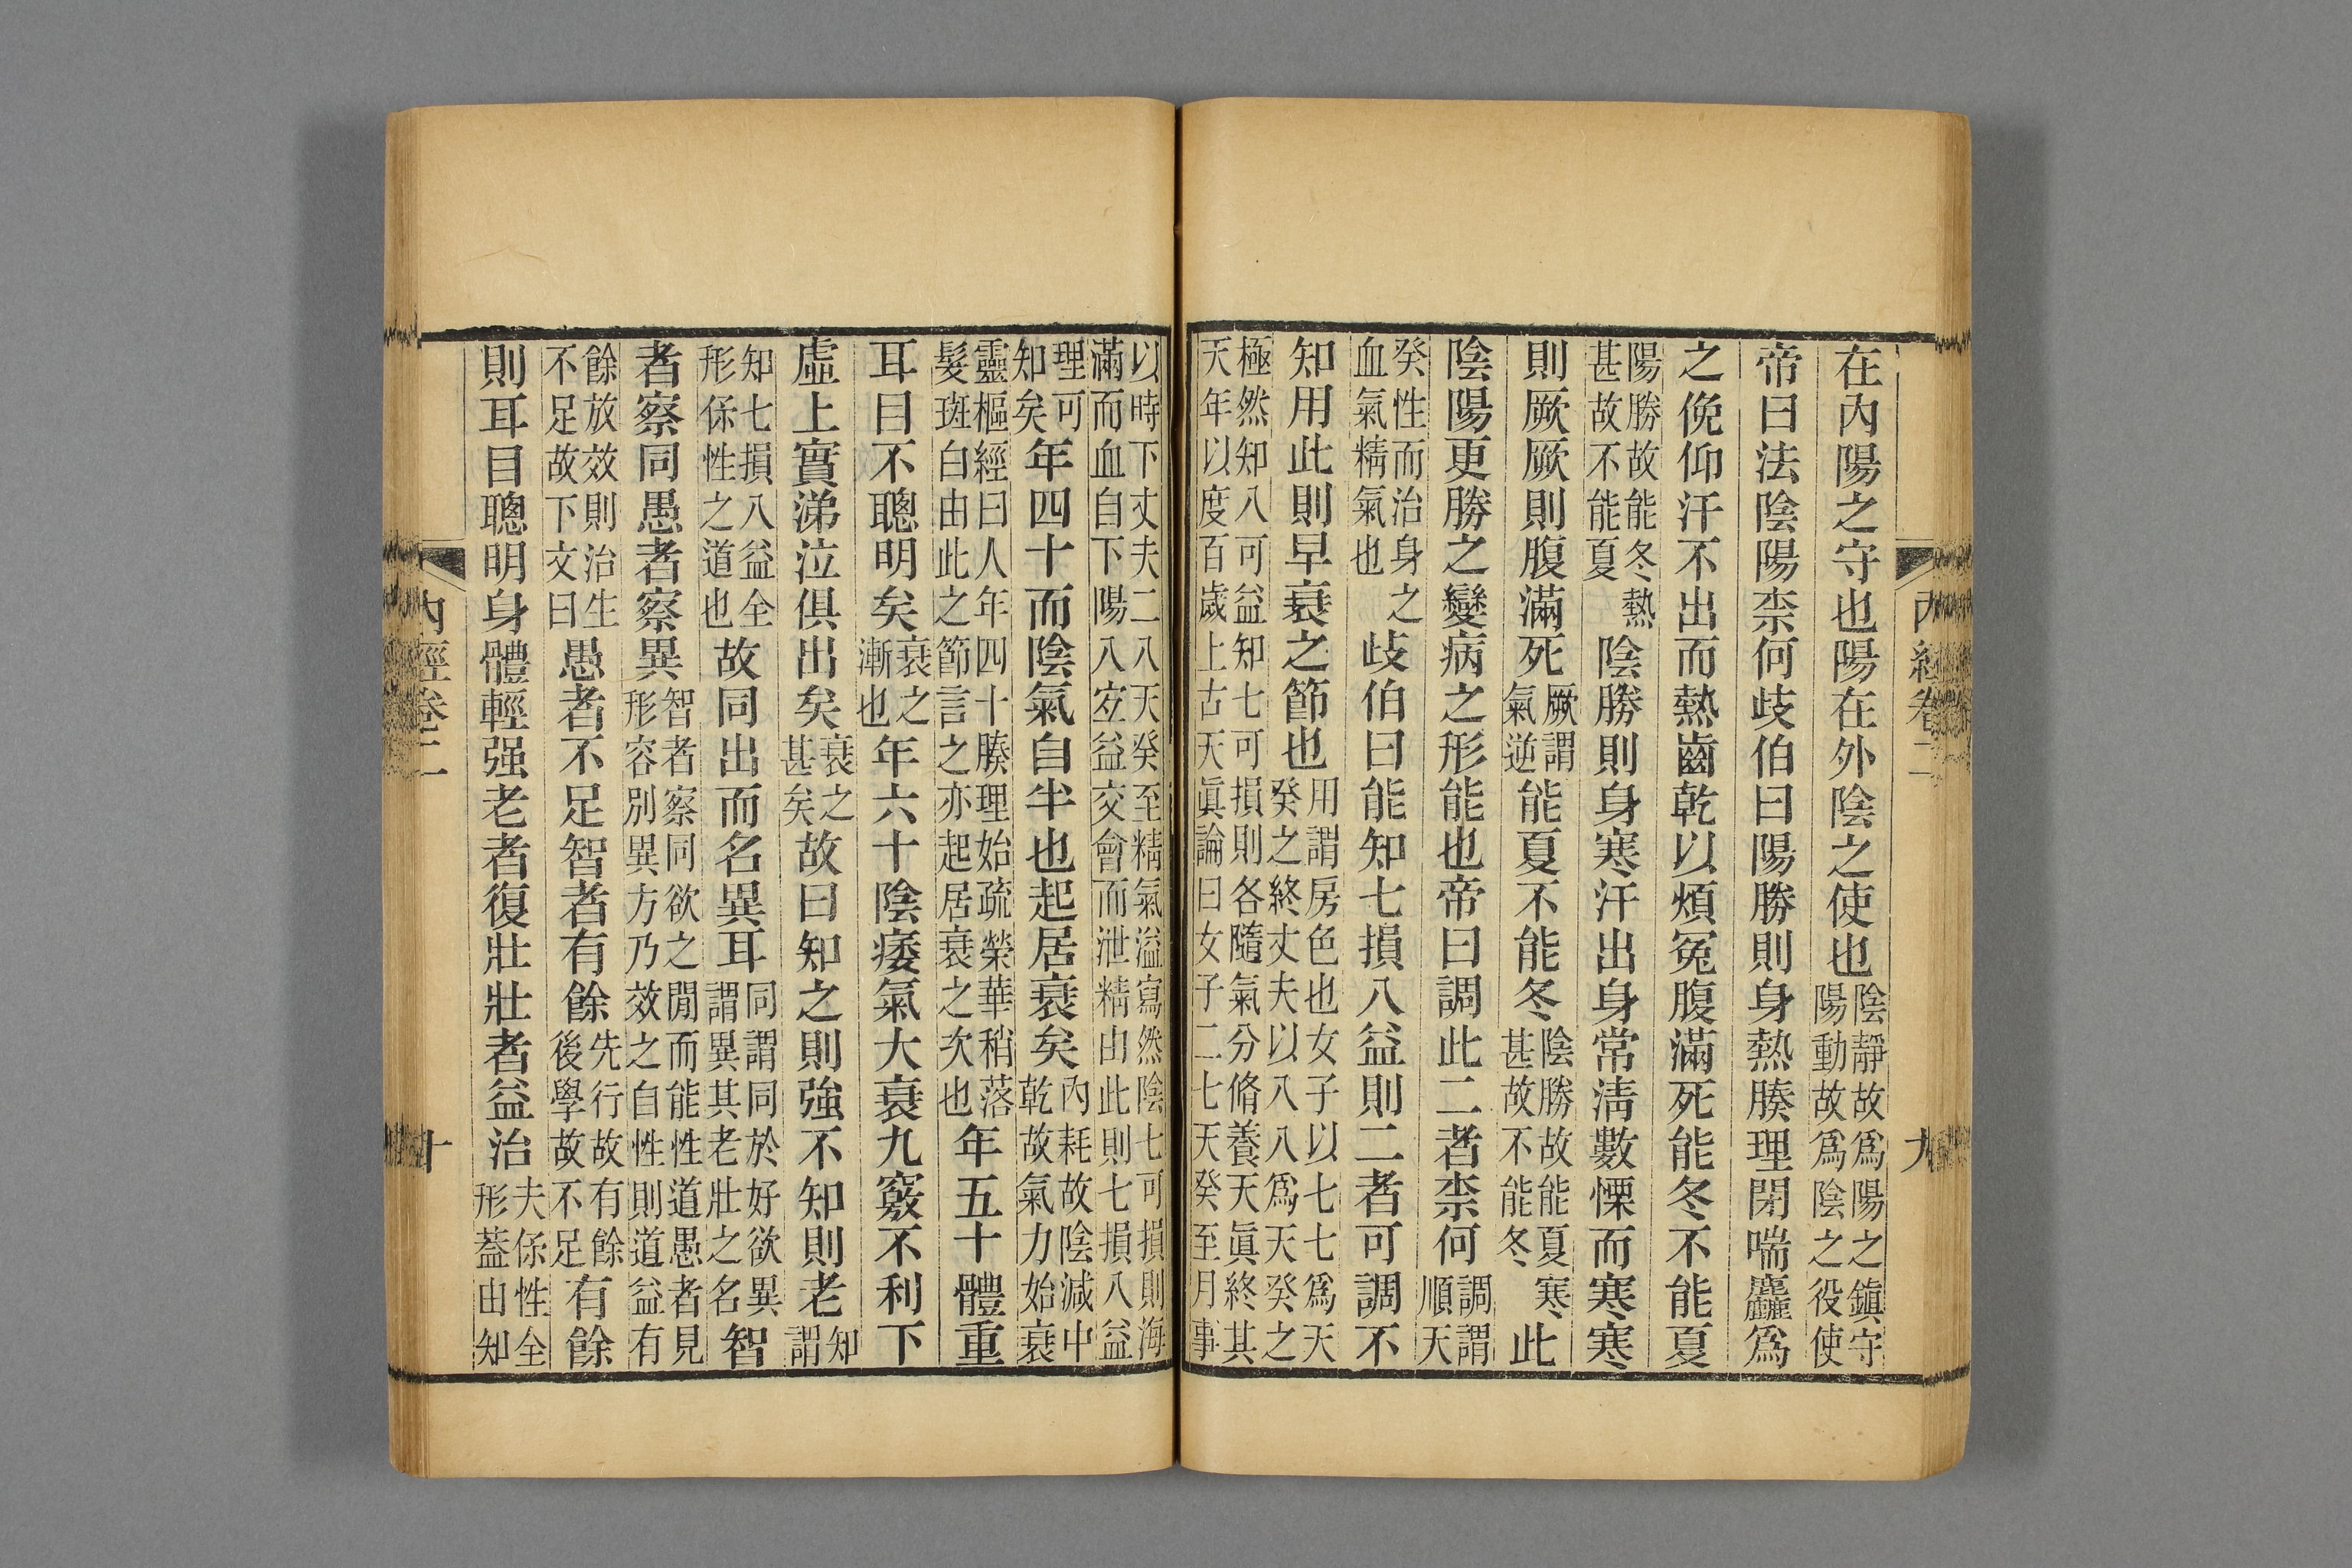 內經卷二　九
在內陽之守也陽在外陰之使也陰靜故爲陽之鎮守陽動故爲陰之役使
帝曰法陰陽柰何歧伯曰陽勝則身熱腠理閉喘麤爲
之俛仰汗不出而熱齒乾以煩冤腹滿死能冬不能夏
陽勝故能冬熱甚故不能夏陰勝則身寒汗出身常清數慄而寒寒
則厥厥則腹滿死厥謂氣逆能夏不能冬陰勝故能夏寒甚故不能冬此
陰陽更勝之變病之形能也帝曰調此二者柰何調謂順天
癸性而治身之血氣精氣也歧伯曰能知七損八益則二者可調不
知用此則早衰之節也用謂房色也女子以七七爲天癸之終丈夫以八八爲天癸之
極然知八可益知七可損則各隨氣分脩養天眞終其天年以度百歲上古天眞論曰女子二七天癸至月事
以時下丈夫二八天癸至精氣溢寫然陰七可損則海滿而血自下陽八宐益交會而泄精由此則七損八益
理可知矣年四十而陰氣自半也起居衰矣內耗故陰減中乾故氣力始衰
靈樞經曰人年四十腠理始疏榮華稍落髮斑白由此之節言之亦起居衰之次也年五十體重
耳目不聰明矣衰之漸也年六十陰痿氣大衰九竅不利下
虛上實涕泣俱出矣衰之甚矣故曰知之則強不知則老知謂
知七損八益全形保性之道也故同出而名異耳同謂同於好欲異謂異其老壯之名智
者察同愚者察異智者察同欲之閒而能性道愚者見形容別異方乃效之自性則道益有
餘放效則治生不足故下文曰愚者不足智者有餘先行故有餘後學故不足有餘
則耳目聰明身體輕强老者復壯壯者益治夫保性全形葢由知
內經卷二　十